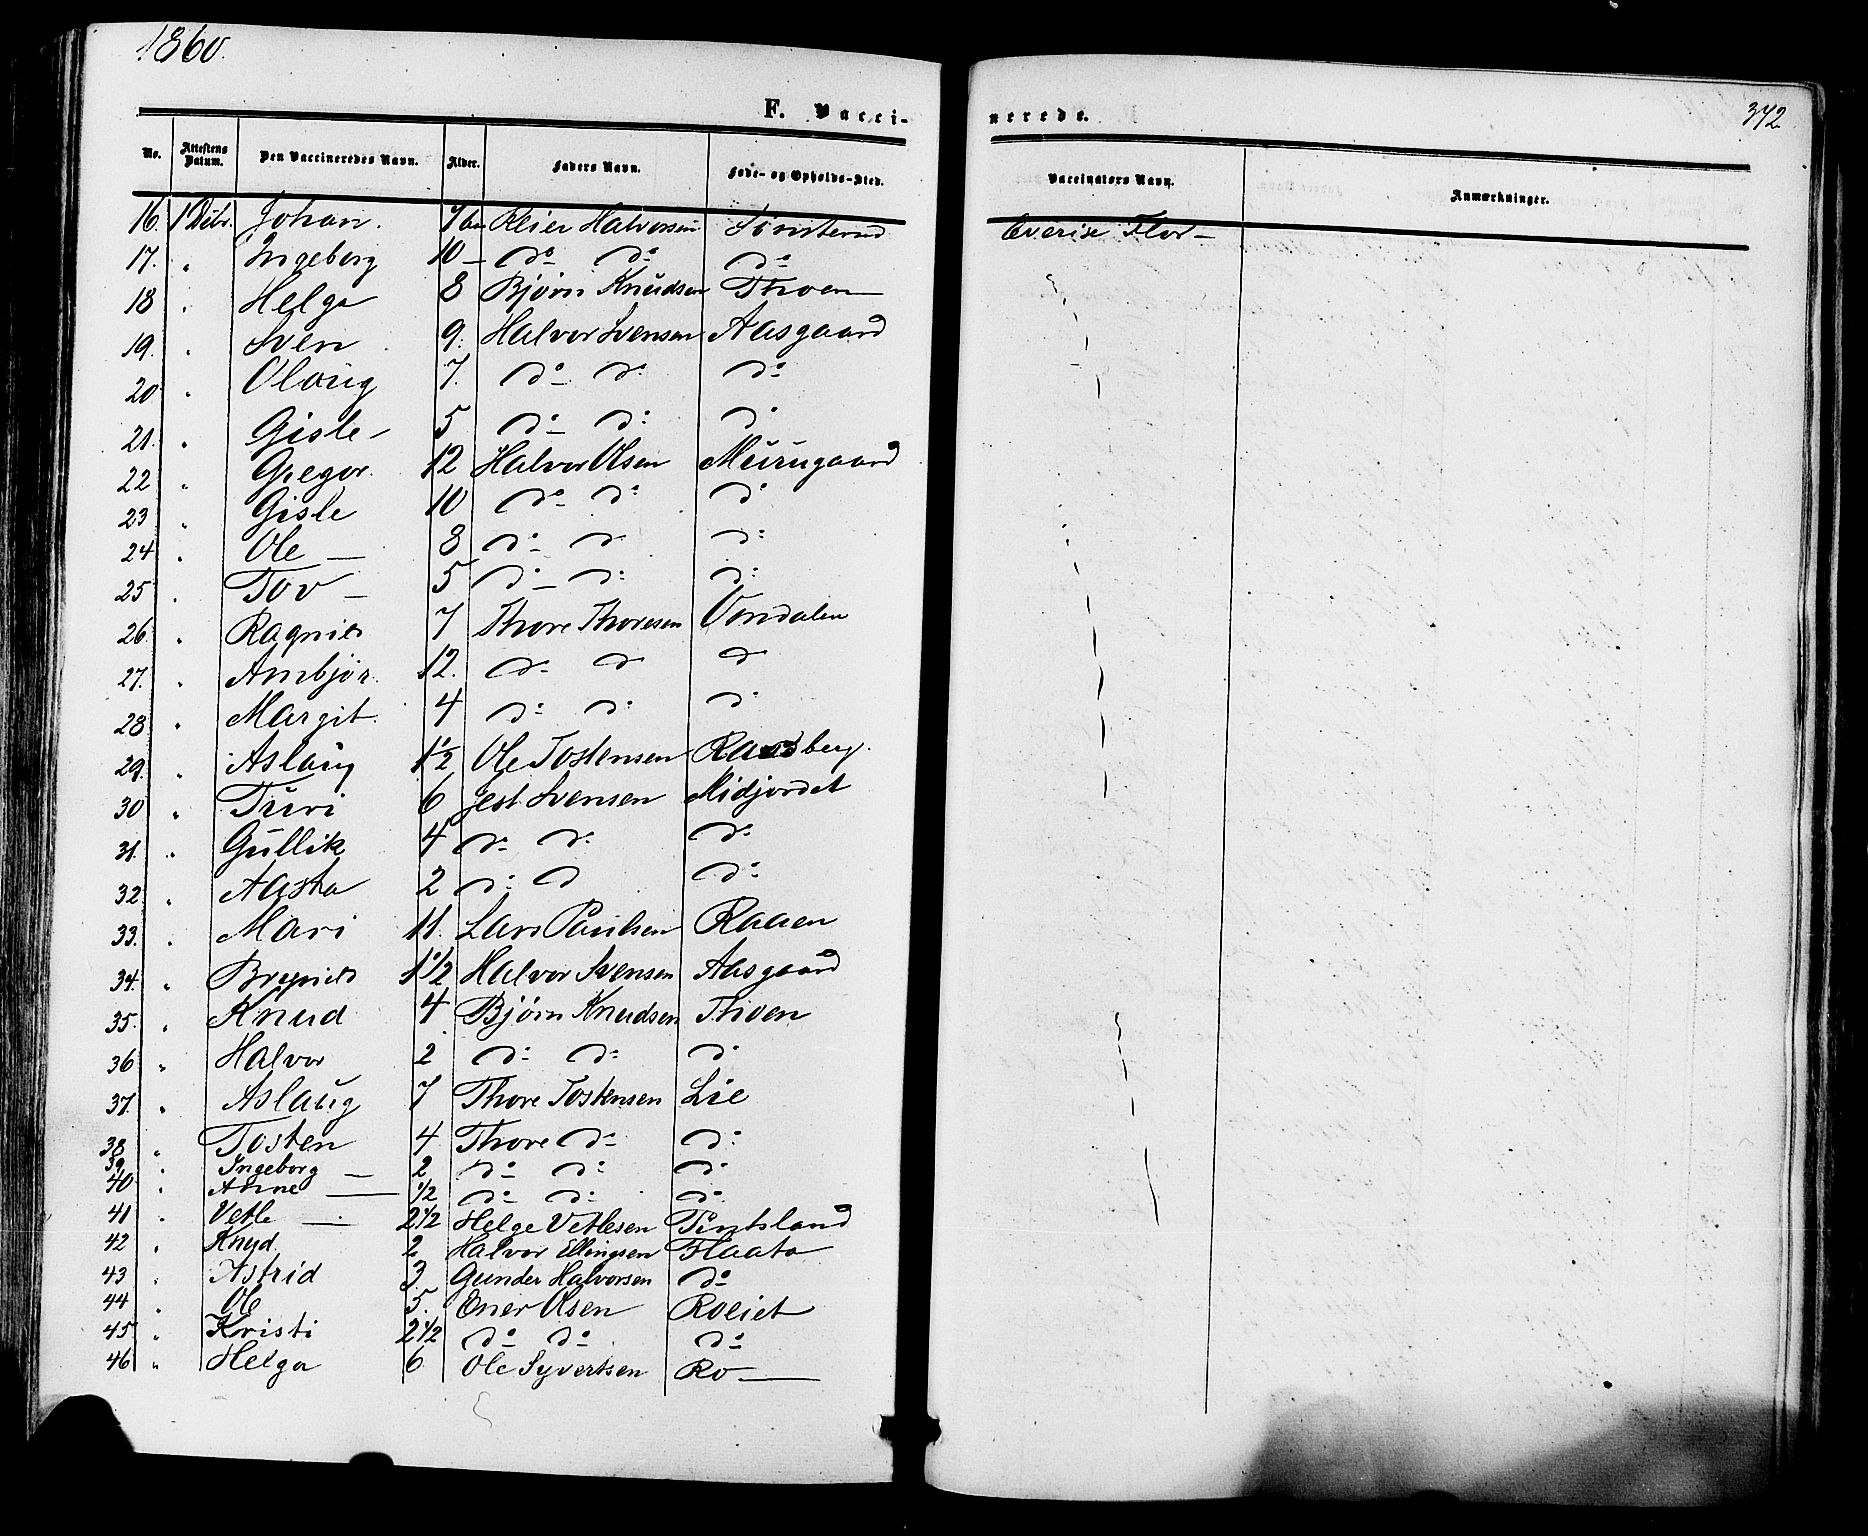 1860.
F. Vacci-
nerede.
372
No. Attestens Datum. Den Vaccineredes Navn. Alder. Faders Navn. Føde- og Opholds-Sted. Vaccinators Navn. Anmærkninger.
16. 1 Johan. 7 Halvorsen
17. " Ingeborg 10 — do do do
18 " Helga 8 Bjørn Knudsen Thoen
19. " Sven 9. Halvor Svensen Aasgaard
20 " Oloug 7. do do do
21. " Gisle 5 do do do
22 " Gregor. 12 Halvor Olsen Muurugaard
23 " Gisle 10 do do do
24 " Ole — 8 do do do
25 . Tov — 5 do do do
26 " Ragnild 7 Thore Thoresen Vondalen
27. " Ambjør. 12. do do do
28 " Margit. 4 do do do
29. " Aslaug 1½ Ole Tostensen
30 " Turi 6 Jest Svensen Midjordet
31. " Gullik 4 do do do
32 " Aasta 2 do do do
33. " Mari 11. Lars Paulsen Raaen
34. " Brynild 1½ Halvor Svensen Aasgaard
35. " Knud 4 Bjørn Knudsen Thoen
36 " Halvor 2 do do do
37. " Aslaug 7 Thore Tostensen Lie
38 " Tosten 4 Thore do do
39 " Ingeborg — 2 do do do
40 " Anne — ½ do do do
41 . Vetle — 2½ Helge Vetlesen
42 " Knud 2 Halvor Ellingsen Flaata
43 " Astrid 3 Gunder Halvorsen do
44 " Ole 5. Ener Olsen Roeiet
45 " Kristi 2½ do do do
46 " Helga 6 Ole Syvertsen Ro —